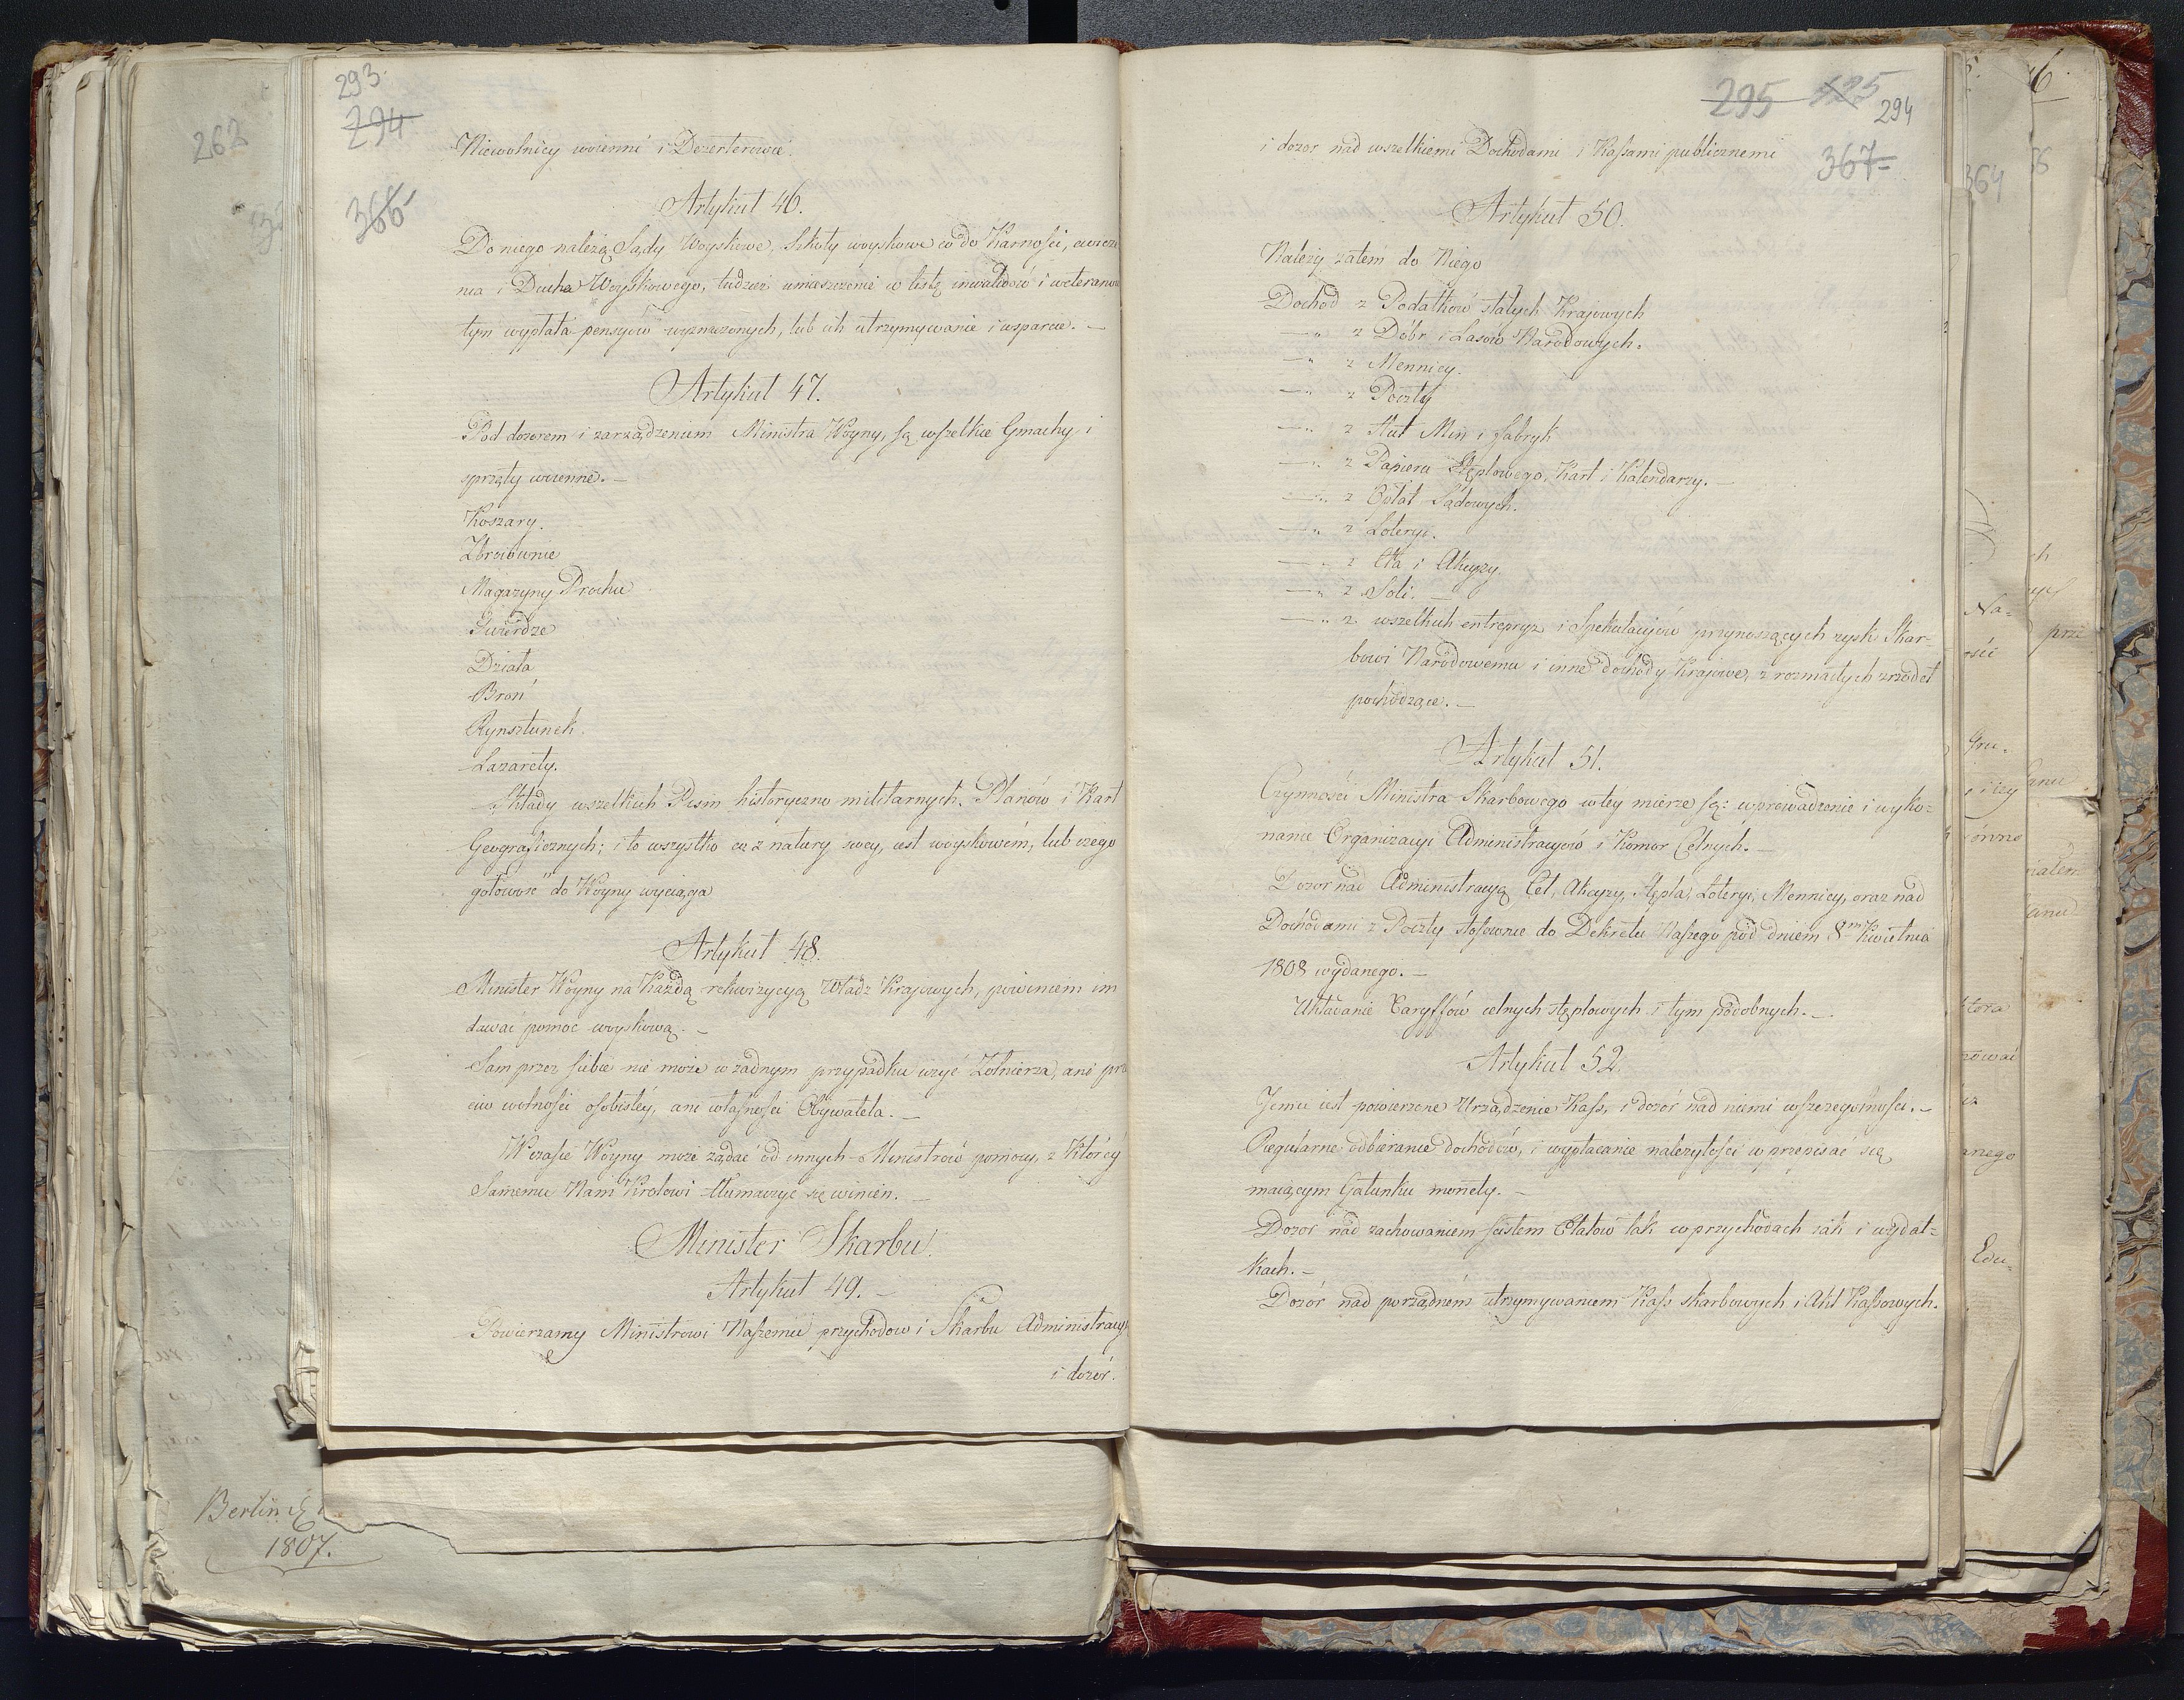 262
Berlin
1807.
293.
294
366
Niewolnicy woienni i Dezerterowie.
Artykuł 46.
Do niego należą Sądy Woyskowe, Szkoły woyskowe co do Karności, cwicze
nia i Ducha Woyskowego, tudzież umieszczenie w listę inwalidów i weteranów
tym wypłata pensyów wyznaczonych, lub ich utrzymywanie i wsparcie. —
Artykuł 47.
Pod dozorem i zarządzeniem Ministra Woyny, są wszelkie Gmachy i
sprzęty woienne. —
Koszary.
Zbroiownie
Magazyny Prochu
Twierdze
Działa
Broń
Rynsztunek.
Lazarety.
Składy wszelkich Pism historyczno militarnych, Planów i Kart
Geograficznych; i to wszystko co z natury swey, iest woyskowém, lub czego
gotowość do Woyny wyciąga
Artykuł 48.
Minister Woyny na Każdą rekwizycyą Władz Krajowych, powinien im
dawać pomoc woyskową. —
Sam przez siebie nie może w żadnym przypadku użyć Żołnierza, ani prze
ciw wolności osobistéy, ani własności Obywatela. —
W czasie Woyny może żądać od innych Ministrów pomocy, z Któréy
Samemu Nam Królowi tłumaczyć się winien. —
Minister Skarbu.
Artykuł 49. —
Powierzamy Ministrowi Naszemu przychodow i Skarbu Administracyą
i dozór.
295
294
367
i dozor nad wszelkiemi Dochodami i Kassami publicznemi
Artykuł 50.
Należy zatem do Niego
Dochod z Podatków stałych Krajowych
—„ z Dóbr i Lasów Narodowych.
—„ z Mennicy.
—„ z Poczty
—„ z Hut Min i fabryk
—„ z Papieru Stęplowego, Kart i Kalendarzy. —
—„ z Opłat Sądowych.
—„ z Loteryi.
—„ z Cła i Akcyzy
—„ z Soli. —
—„ z wszelkich entrepryz i Spekulacyjów przynoszących zysk Skar=
bowi Narodowemu i inne dochody Krajowe, z rozmaitych zrzodeł
pochodzące. —
Artykuł 51.
Czynności Ministra Skarbowego w téy mierze są: wprowadzenie i wyko=
nanie Organizacyi Administracyów i Komor Celnych. —
Dozor nad Administracyą Ceł, Akcyzy, Stępla, Loteryi, Mennicy, oraz nad
Dochodami z Poczty stosownie do Dekretu Naszego pod dniem 8m Kwietnia
1808 wydanego. —
Układanie Taryffów celnych stęplowych i tym podobnych. —
Artykuł 52.
Jemu iest powierzone Urządzenie Kass, i dozór nad niemi w szczegolności. —
Regularne odbieranie dochodów, i wypłacanie należytości w przepisać się
maiącym Gatunku monety. —
Dozor nad zachowaniem scisłem Etatów tak w przychodach iak i wydat=
kach. —
Dozór nad porządném utrzymywaniem Kass skarbowych i Akt Kassowych.
364
Na=
Gru=
Edu=